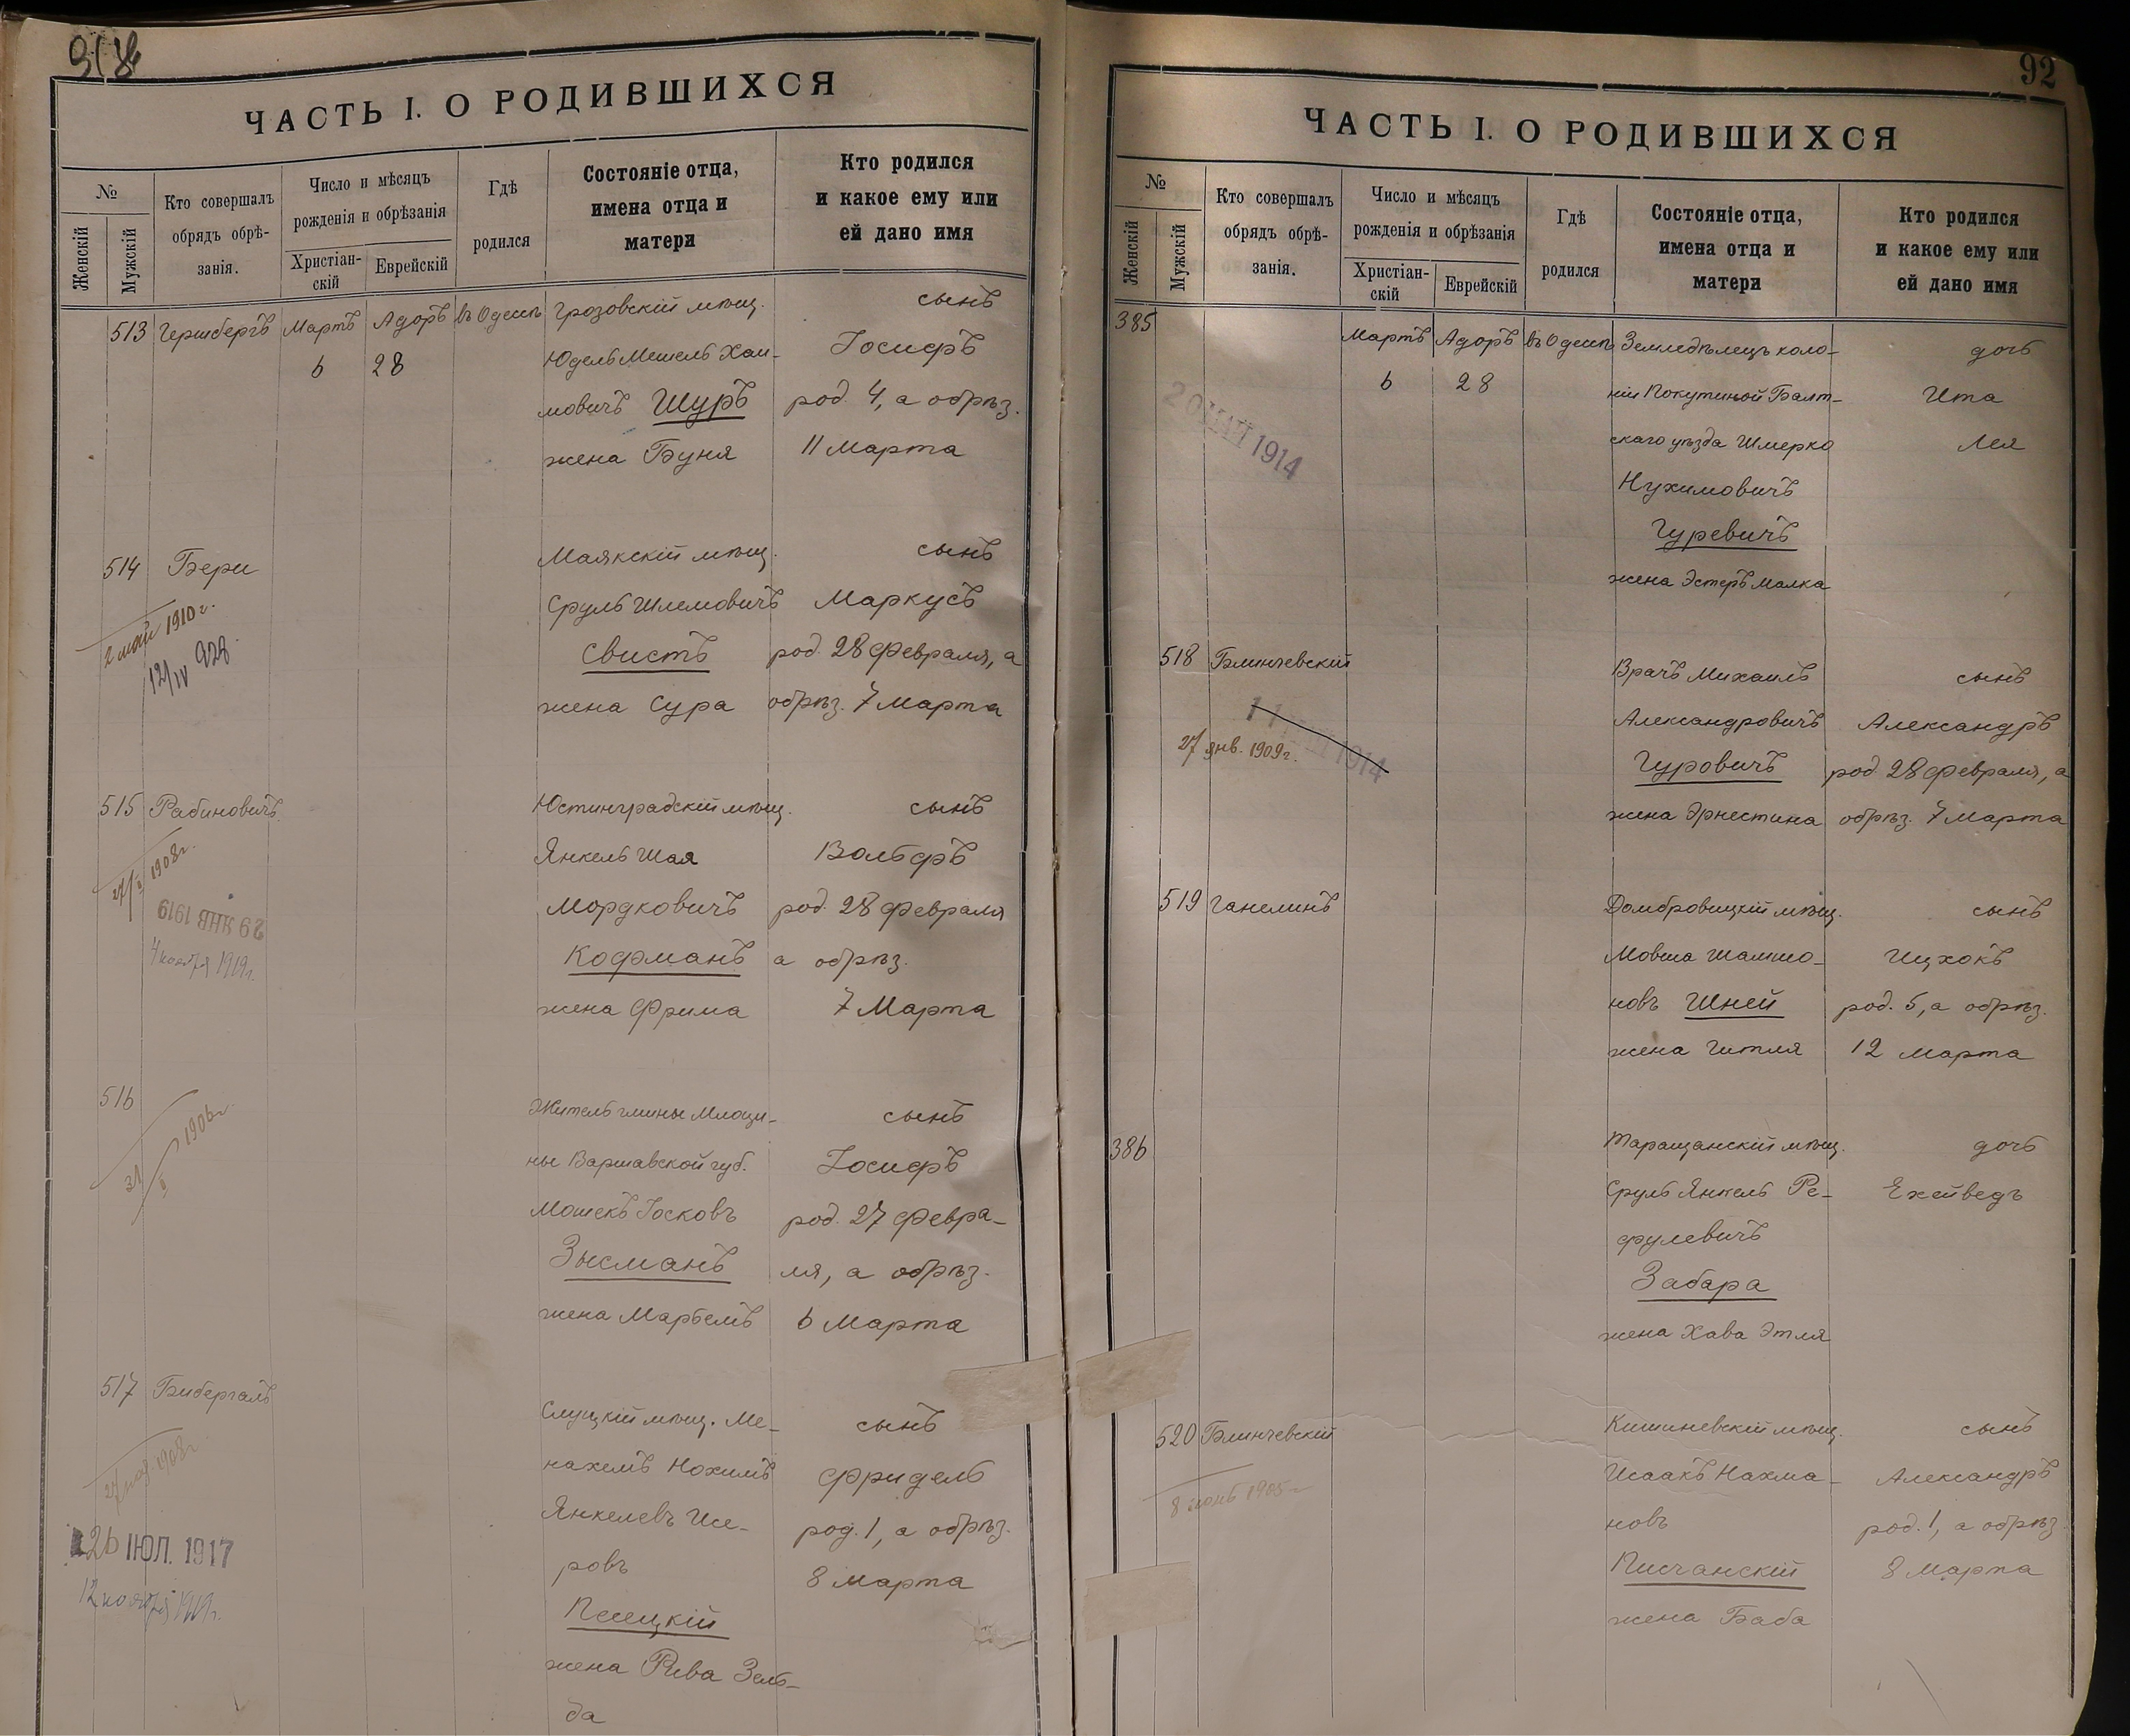 ЧАСТЬ I. О РОДИВШИХСЯ
№
Женскій
Мужскій
Кто совершалъ
обрядъ обрѣ-
занія.
Число и мѣсяцъ
рожденія и обрѣзанія
Христіан-
скій
Еврейскій
Гдѣ
родился
Состояніе отца,
имена отца и
матери
Кто родился
и какое ему или
ей дано имя
513 Гершбергъ Мартъ Адоръ въ Одессѣ Грозовскій мѣщ. сынъ
6 28 Юдель Мешель Хаи- Іосифъ
мовичъ Шуръ род. 4, а обрѣз.
жена Буня 11 Марта
514 Бери Маякскій мѣщ. сынъ
2 май 1910 г. Сруль Шлемовичъ Маркусъ
12/IV 928 Свистъ род. 28 Февраля, а
жена Сура обрѣз. 7 Марта
515 Рабиновичъ Юстинградскій мѣщ. сынъ
1908 г. Янкель Шая Вольфъ
29 ЯНВ 1919 Мордковичъ род. 28 Февраля
1919 г. Кофманъ а обрѣз.
жена Фрима 7 Марта
516 Житель гмины Млоци- сынъ
1906 г. ны Варшавской губ. Іосифъ
31 Мошекъ Іосковъ род. 27 Февра-
Зысманъ ля, а обрѣз.
жена Марьемъ 6 Марта
517 Бибергалъ Слуцкій мѣщ. Ме- сынъ
1908 г. нахемъ Нохимъ Фридель
Янкелевъ Исе- род. 1, а обрѣз.
26 ІЮЛ. 1917 ровъ 8 Марта
12 ноября 1919 г. Песецкій
жена Рива Зель-
да
92
ЧАСТЬ I. О РОДИВШИХСЯ
№
Женскій
Мужскій
Кто совершалъ
обрядъ обрѣ-
занія.
Число и мѣсяцъ
рожденія и обрѣзанія
Христіан-
скій
Еврейскій
Гдѣ
родился
Состояніе отца,
имена отца и
матери
Кто родился
и какое ему или
ей дано имя
385 Мартъ Адоръ въ Одессѣ Земледѣлецъ коло- дочь
6 28 ніи Покутиной Балт- Ита
20 МАЙ 1914 скаго уѣзда Шмерко Лея
Нухимовичъ
Гуревичъ
жена Эстеръ Малка
518 Блинчевскій Врачъ Михаилъ сынъ
1914 Александровичъ Александръ
27 янв. 1909 г. Гуровичъ род. 28 Февраля, а
жена Эрнестина обрѣз. 7 Марта
519 Ганелинъ Домбровицкій мѣщ. сынъ
Мовша Шамшо- Ицхокъ
новъ Шней род. 5, а обрѣз.
жена Гитля 12 Марта
386 Таращанскій мѣщ. дочь
Сруль Янкель Ре- Ехейведъ
фулевичъ
Забара
жена Хава Этля
520 Блинчевскій Кишиневскій мѣщ. сынъ
8 1905 г. Исаакъ Нахма- Александръ
новъ род. 1, а обрѣз.
Писчанскій 8 Марта
жена Баба